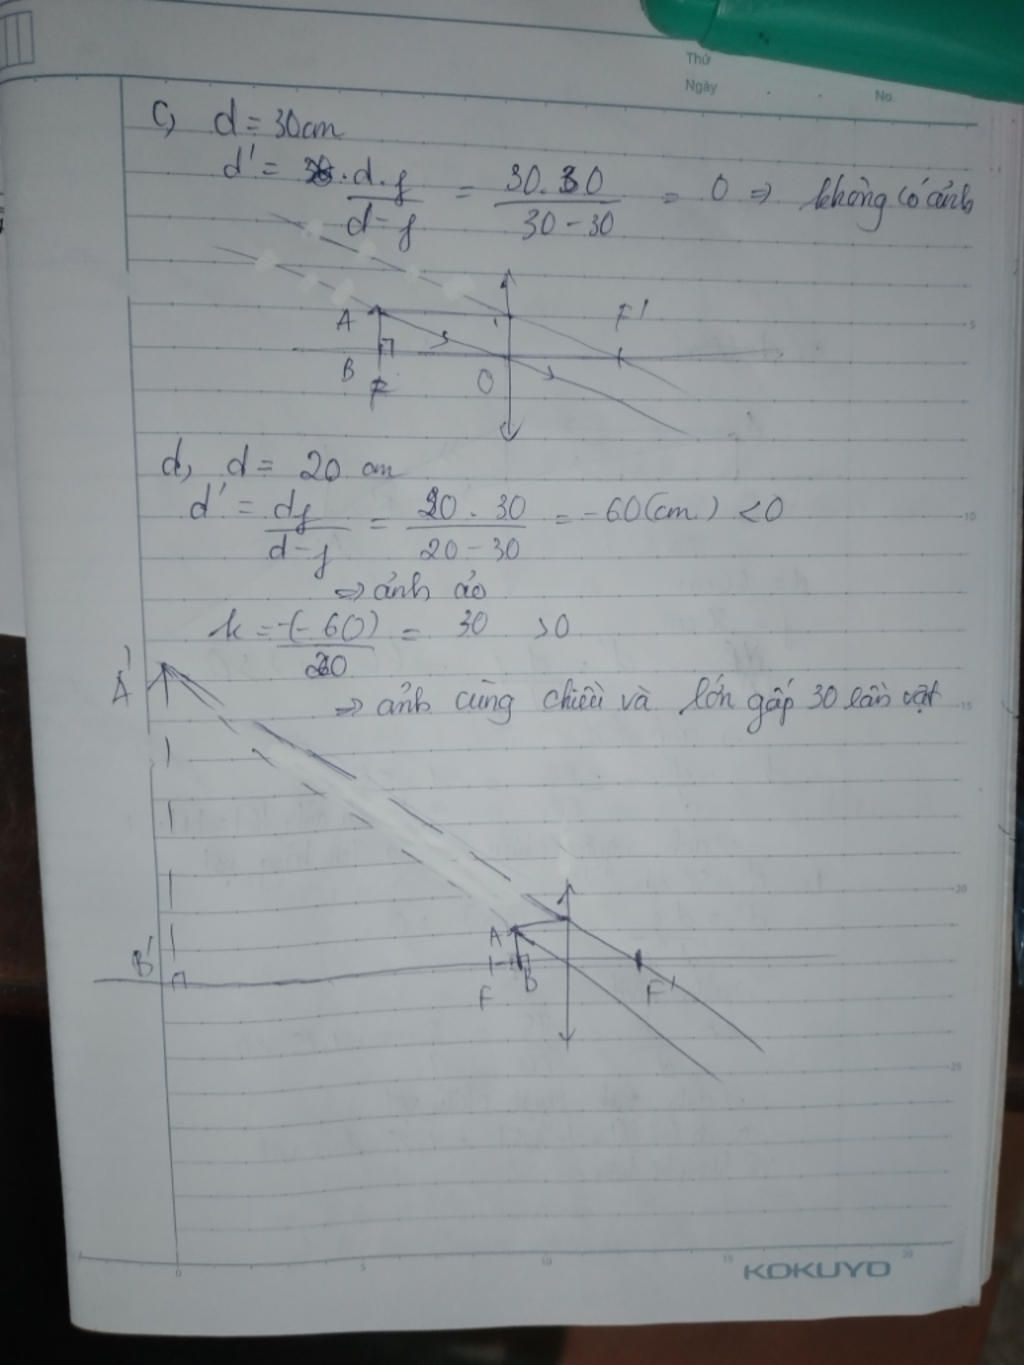 Thứ
Ngày . . No.
c, d = 30cm
d' = d.f / d-f = 30.30 / 30-30 = 0 => không có ảnh
A F'
B O
F
d, d = 20 cm
d' = df / d-f = 20.30 / 20-30 = -60(cm) <0
=> ảnh ảo
k = -(-60) / 20 = 30 >0
A'
=> ảnh cùng chiều và lớn gấp 30 lần vật
A
B' F B F'
5
10
15
20
25
0 5 10 15 20
KOKUYO